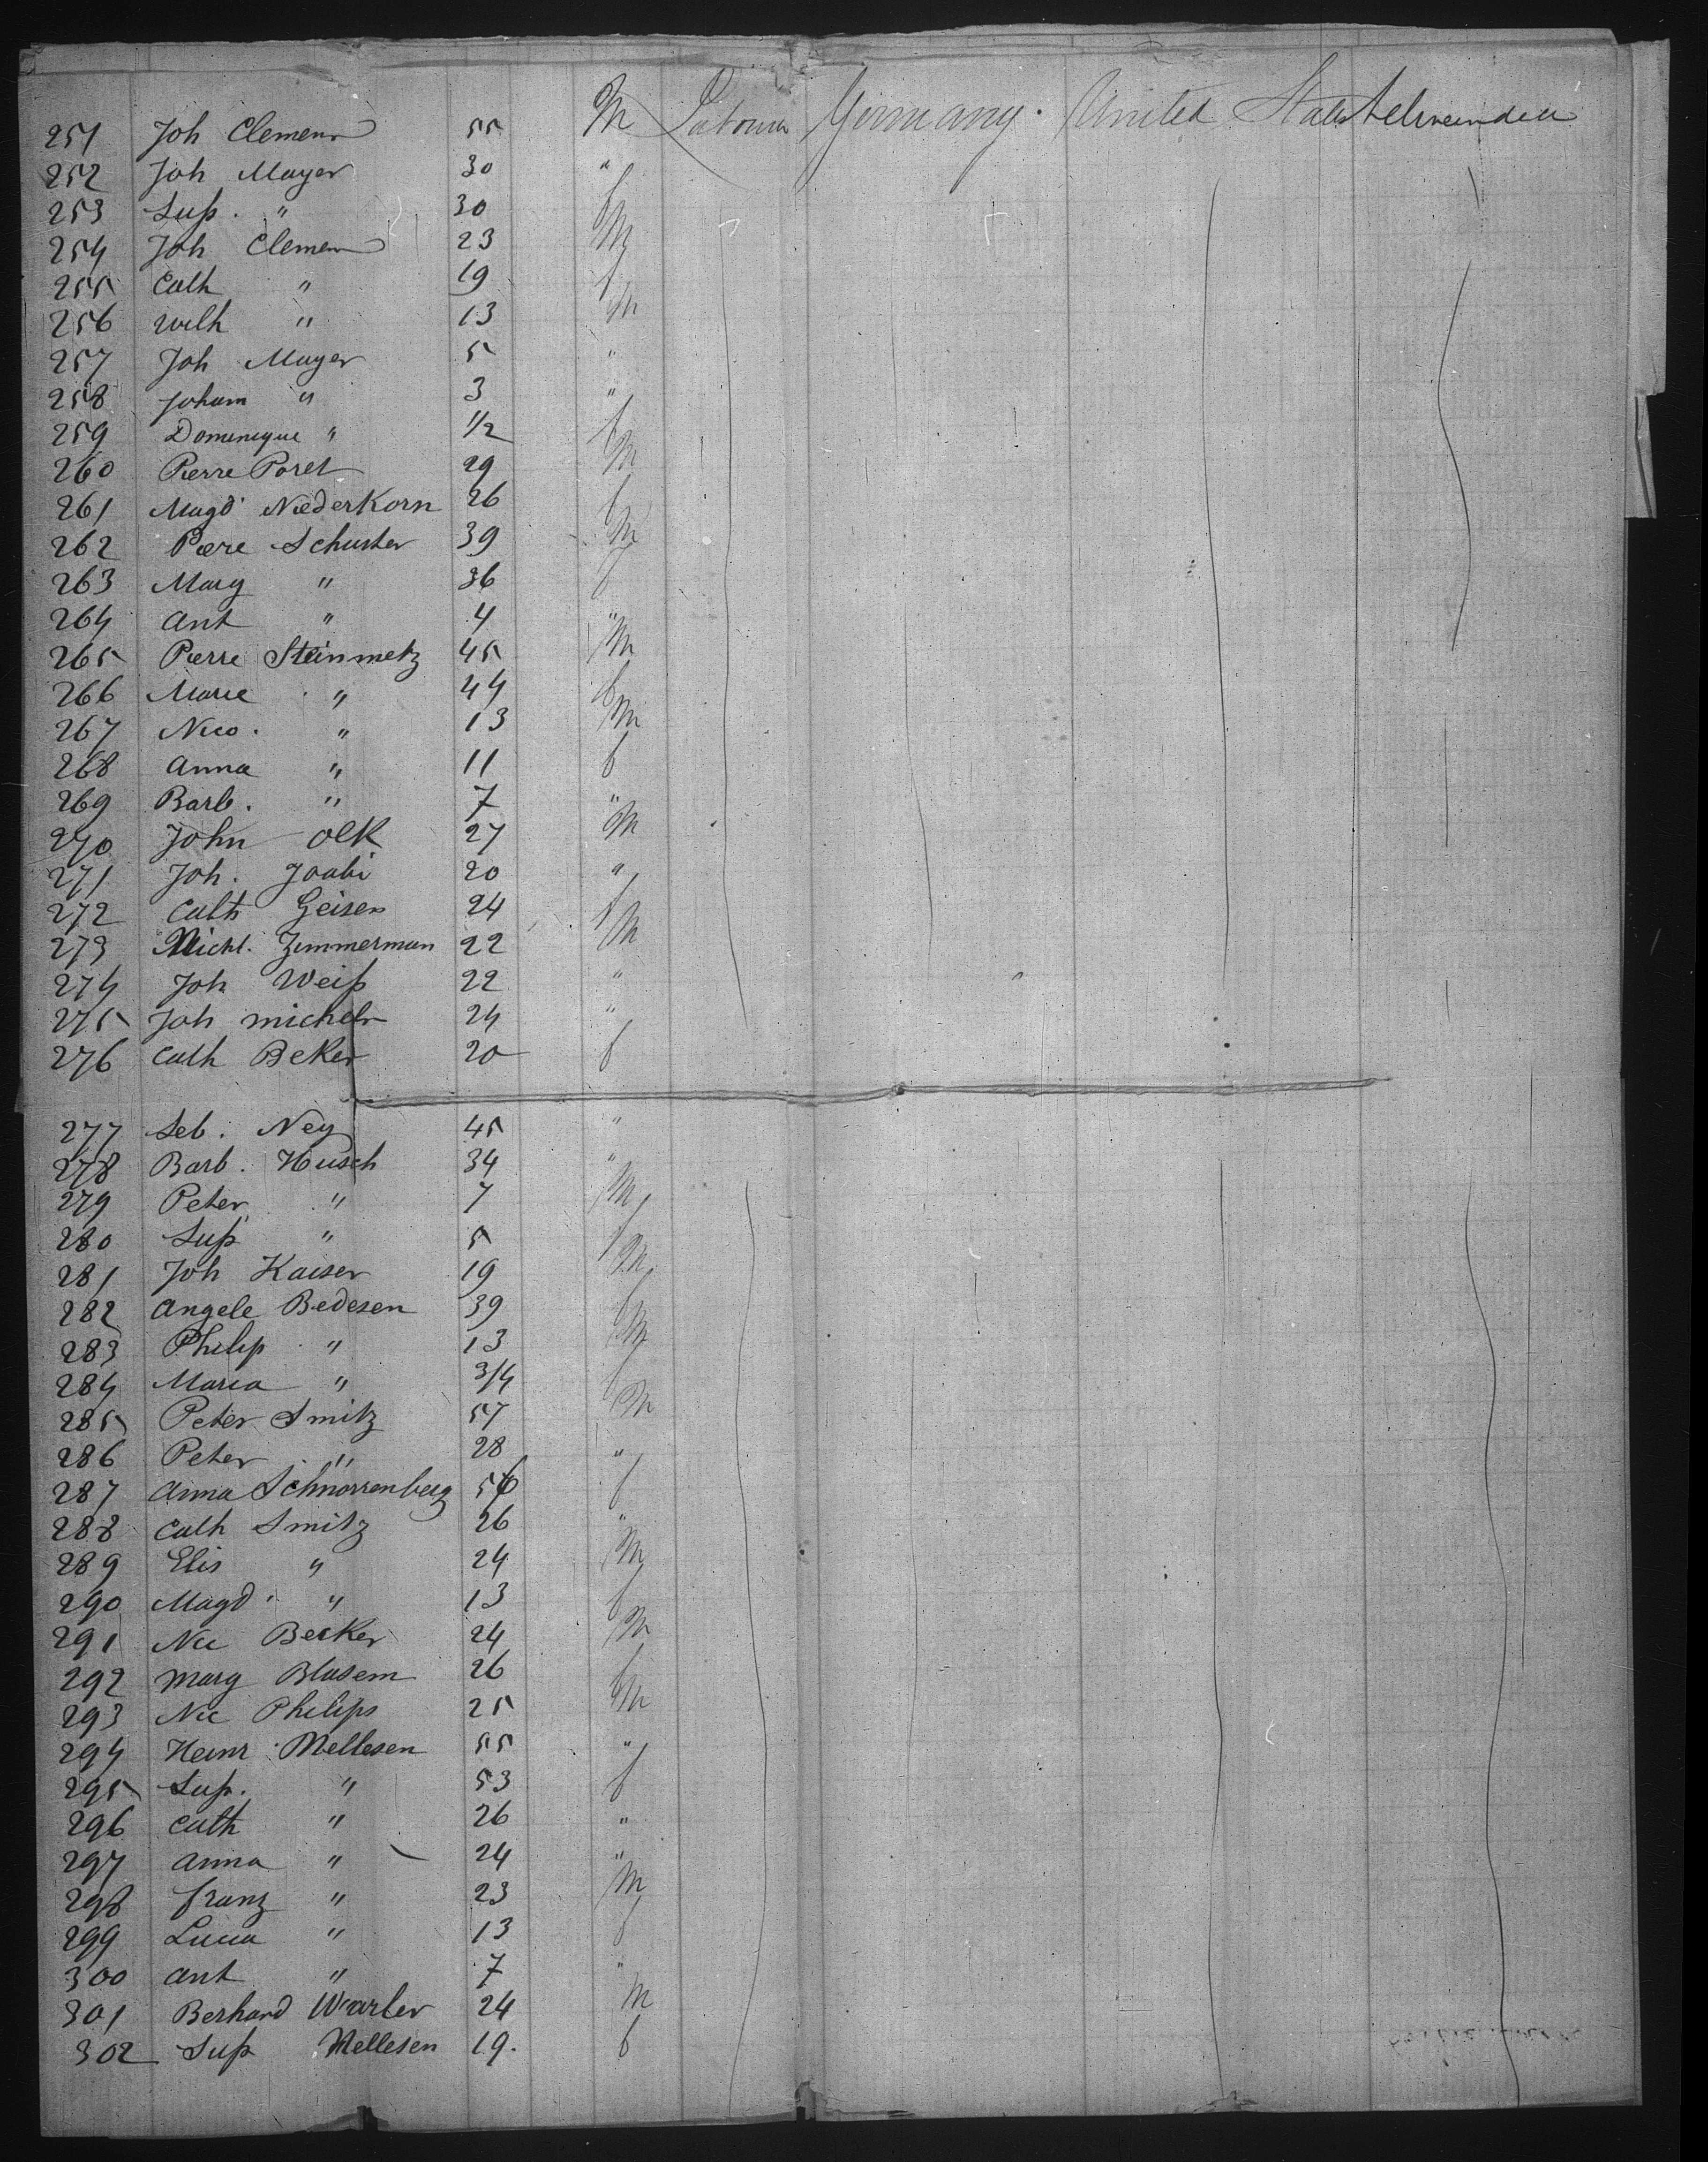 251 Joh Clemens 55 M Labourer Germany. United States
252 Joh Mayer 30 "
253 Susz. " 30 f
254 Joh Clemens 23 M
255 Cath " 19 f
256 Wilh " 13 M
257 Joh Mayer 5 "
258 Johann " 3 "
259 Dominique " 1/2 f
260 Pierre Poret 29 M
261 Magd. Niederkorn 26 f
262 Piere Schuster 39 M
263 Marg " 36 f
264 Ant " 4 "
265 Pierre Steinmetz 45 M
266 Marie " 44 f
267 Nico. " 13 M
268 Anna " 11 f
269 Barb. " 7 "
270 John Olk 27 M
271 Joh. 20 "
272 Cath Geisen 24 f
273 Michl. Zimmerman 22 M
274 Joh Weiß 22 "
275 Joh Michels 24 "
276 Cath Beker 20 f
277 Seb. Ney 45 "
278 Barb. Husch 34 "
279 Peter " 7 M
280 Susz " 5 f
281 Joh Kaiser 19 M
282 Angele Bedesen 39 f
283 Philip " 13 M
284 Maria " 3/4 f
285 Peter Smitz 57 M
286 Peter " 28 "
287 Anna Schnorrenberg 56 f
288 Cath Smitz 26 "
289 Elis " 24 M
290 Magd. " 13 f
291 Nic Becker 24 M
292 Marg Blasem 26 f
293 Nic Philips 25 M
294 Heinr. Mellesen 55 "
295 Susz. " 53 f
296 Cath " 26 "
297 Anna " 24 "
298 Franz " 23 M
299 Lucia " 13 f
300 Ant " 7 "
301 Berhard 24 M
302 Susz Mellesen 19. f